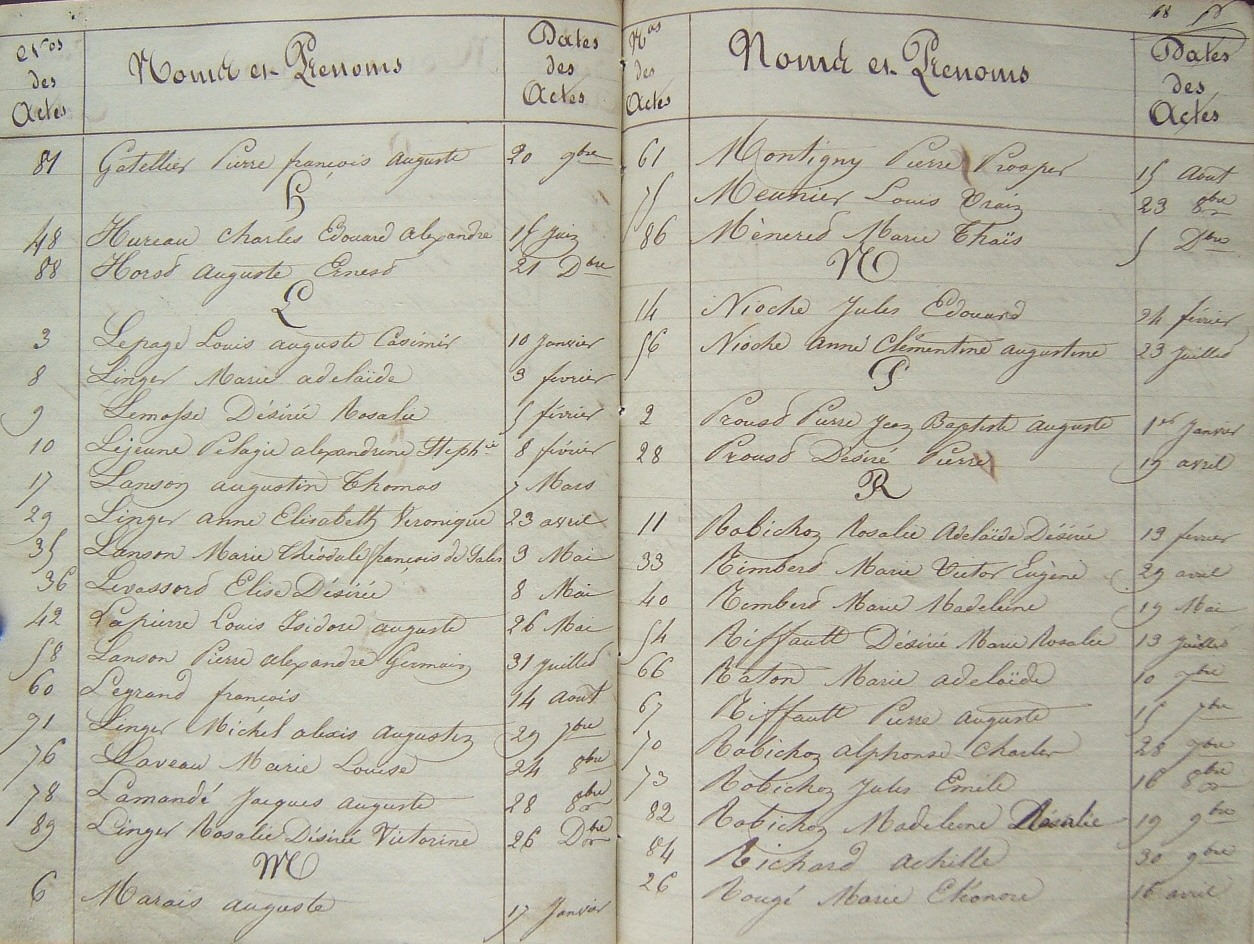 Nos des Actes Noms et Prenoms Dates des Actes
81 Gatellier Pierre françois Auguste 20 9bre
H
48 Hureau Charles Edouard Alexandre 15 Juin
88 Horsd Auguste Ernesd 21 Dbre
L
3 Lepage Louis auguste Casimir 10 Janvier
8 Linger Marie adelaïde 3 fevrier
9 Lemosse Désirée Rosalie 5 février
10 Léjeune Pélagie alexandrine Stephie 8 février
17 Lanson augustin Thomas 7 Mars
29 Linger anne Elisabeth Veronique 23 avril
35 Lanson Marie Théodule françois de Sales 3 Mai
36 Levassord Elise Désirée 8 Mai
42 Lapierre Louis Isidore auguste 26 Mai
58 Lanson Pierre alexandre Germain 31 Juilled
60 Legrand françois 14 aout
71 Linger Michel alexis augustin 29 7bre
76 Laveau Marie Louise 24 8bre
78 Lamandé Jacques auguste 28 8bre
89 Linger Rosalie Désirée Victorine 26 Dbre
M
6 Marais auguste 17 Janvier
68
Nos des Actes Noms et Prenoms Dates des Actes
61 Montigny Pierre Prosper 15 Aout
75 Meunier Louis Vrain 23 8bre
86 Mènered Marie Thaïs 5 Dbre
N
14 Nioche Jules Edouard 24 février
56 Nioche Anne Clémentine augustine 23 Juilled
P
2 Prousd Pierre Jean Baptiste Auguste 1er Janvier
28 Prousd Désiré Pierre 19 avril
R
11 Robichon Rosalie Adelaïde Désirée 13 fevrier
33 Rimberd Marie Victor Eugène 29 avril
40 Remberd Marie Madeleine 19 Mai
54 Riffault Désirée Marie Rosalie 13 Juilled
66 Raton Marie adelaïde 10 7bre
67 Riffault Pierre Auguste 15 7bre
70 Robichon alphonse Charles 28 7bre
73 Robichon Jules Emile 16 8bre
82 Robichon Madeleine Rosalie 19 9bre
84 Richard Achille 30 9bre
26 Rougé Marie Eléonore 16 avril